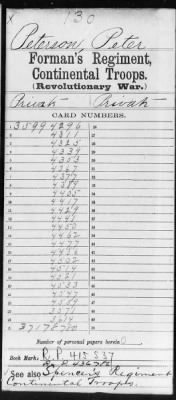 130
Peterson, Peter
Forman's Regiment,
Continental Troops.
(Revolutionary War.)
Private Private
CARD NUMBERS.
1 35994296
2 4311
3 4325
4 4339
5 4353
6 4367
7 4377
8 4389
9 4405
10 4417
11 4429
12 4441
13 4450
14 4462
15 4477
16 4486
17 4502
18 4514
19 4521
20 4533
21 4547
22 4559
23 3571
24 3614
25 37178780
Number of personal papers herein 0
Book Mark: R. P. 415837
R. P. 436780
See also Spencer's Regiment
Continental Troops.